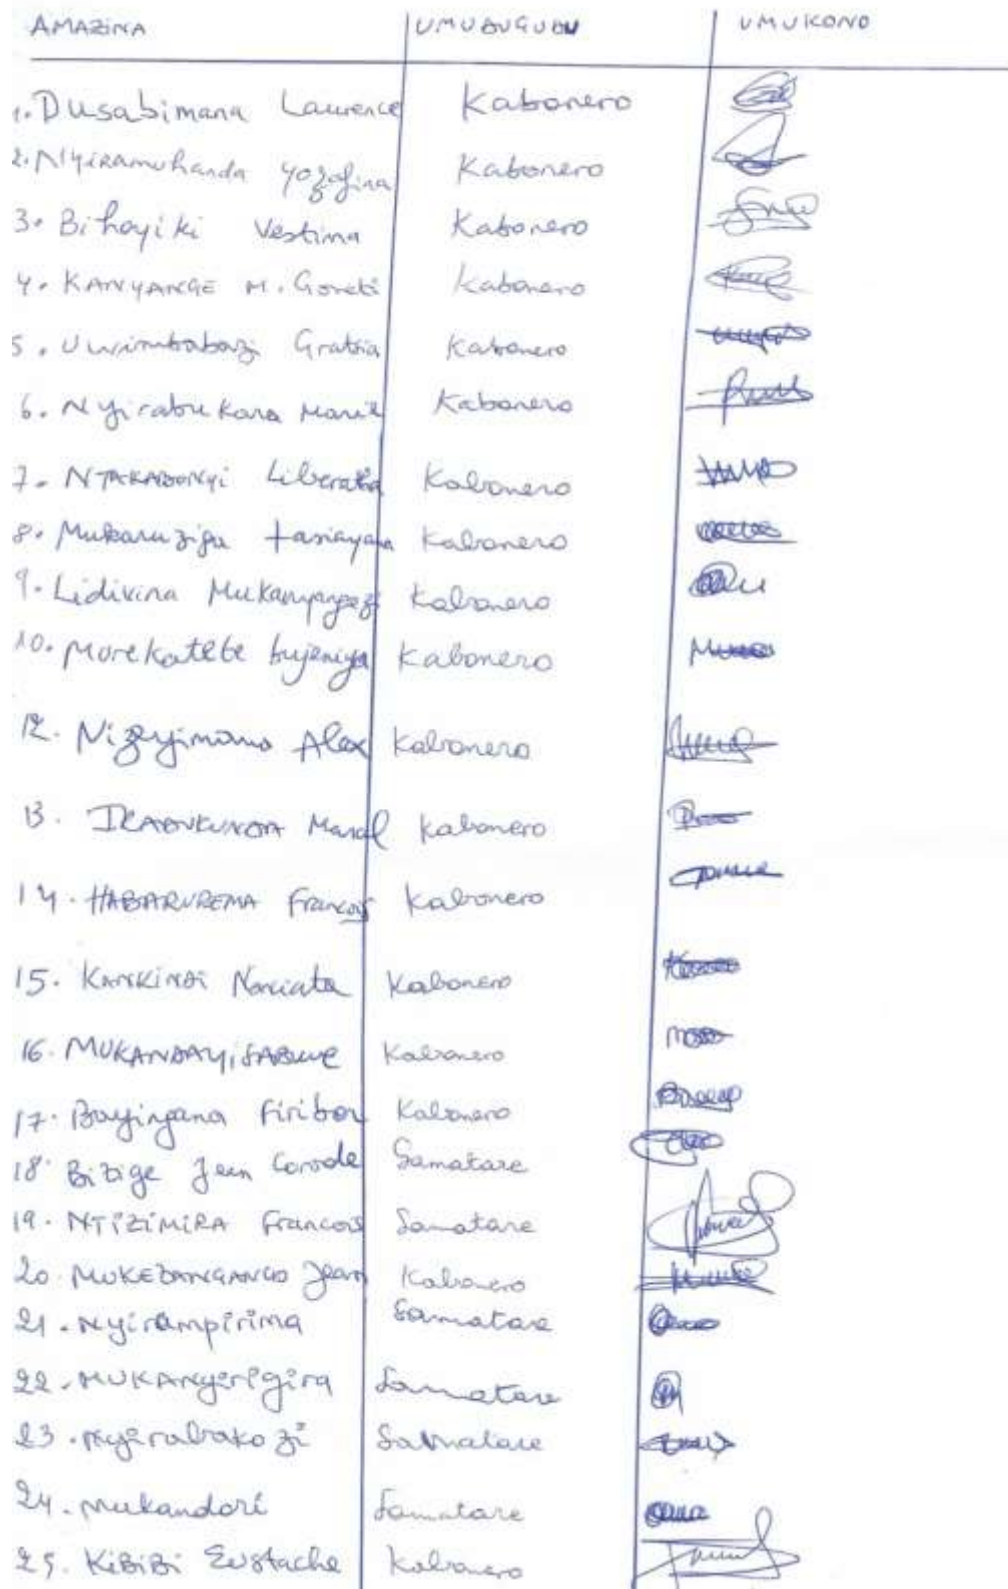 AMAZINA UMUDUGUDU UMUKONO
1. Dusabimana Laurence Kabonero
2. Nyiramuhanda Yozofina Kabonero
3. Bihoyiki Vestina Kabonero
4. KANYANGE M. Goreti Kabonero
5. Uwimbabazi Gratsia Kabonero
6. Nyirabukara Marie Kabonero
7. NTAKABONYI Liberata Kabonero
8. Mukaruziga Kabonero
9. Lidivina Mukanyangezi Kabonero
10. Morekatete bujeniya Kabonero
12. Nizeyimana Alex Kabonero
13. Kabonero
14. HABARUREMA Francois Kabonero
15. KANKINDI Kabonero
16. MUKANDAYISABUYE Kabonero
17. Bayingana Firibor Kabonero
18. Bizige Jean Samatare
19. NTIZIMIRA Francois Samatare
20. MUKEZANGANGO Jean Kabonero
21. Nyirampirima Samatare
22. MUKANyirigira Samatare
23. Nyirabakozi Samatare
24. Mukandori Samatare
25. KiBiBi Eustache Kabonero